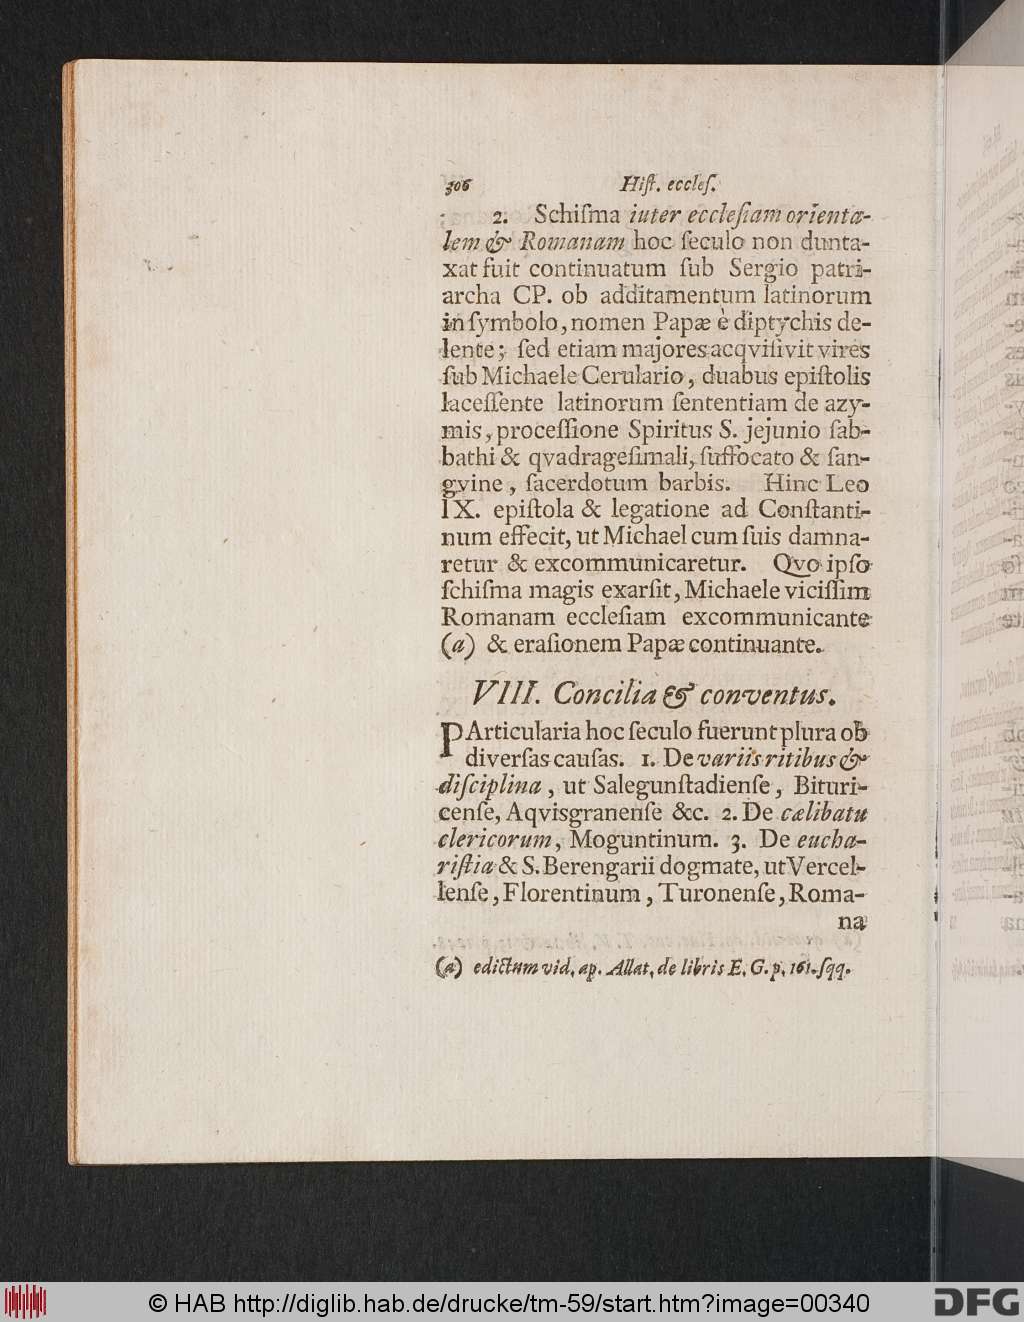 306 Hiſt. eccleſ.
2. Schiſma iuter eccleſiam orienta-
lem & Romanam hoc ſeculo non dunta-
xat fuit continuatum ſub Sergio patri-
archa CP. ob additamentum latinorum
in ſymbolo, nomen Papæ è diptychis de-
lente; ſed etiam majores acqviſivit vires
ſub Michaele Cerulario, duabus epiſtolis
laceſſente latinorum ſententiam de azy-
mis, proceſſione Spiritus S. jejunio ſab-
bathi & qvadrageſimali, ſuffocato & ſan-
gvine, ſacerdotum barbis. Hinc Leo
IX. epiſtola & legatione ad Conſtanti-
num effecit, ut Michael cum ſuis damna-
retur & excommunicaretur. Qvo ipſo
ſchiſma magis exarſit, Michaele viciſſim
Romanam eccleſiam excommunicante
(a) & eraſionem Papæ continuante.
VIII. Concilia & conventus.
PArticularia hoc ſeculo fuerunt plura ob
diverſas cauſas. 1. De variis ritibus &
diſciplina, ut Salegunſtadienſe, Bituri-
cenſe, Aqvisgranenſe &c. 2. De cælibatu
clericorum, Moguntinum. 3. De eucha-
riſtia & S. Berengarii dogmate, ut Vercel-
lenſe, Florentinum, Turonenſe, Roma-
na
(a) edictum vid. ap. Allat. de libris E. G. p. 161. ſqq.
© HAB http://diglib.hab.de/drucke/tm-59/start.htm?image=00340
DFG